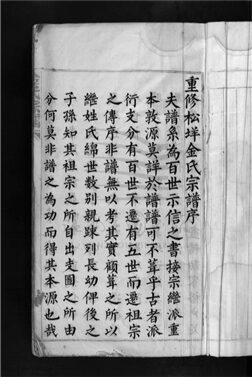 重修松垟金氏宗譜序
夫譜系為百世示信之書接宗繼派重
本敦源莫詳於譜譜可不葺乎古者派
衍支分有百世不遷有五世而遷祖宗
之傳序非譜無以考其實顧葺之所以
繼姓氏綿世数别親踈列長幼俾後之
子孫知其祖宗之所自出支圖之所由
分何莫非譜之為功而得其本源也哉